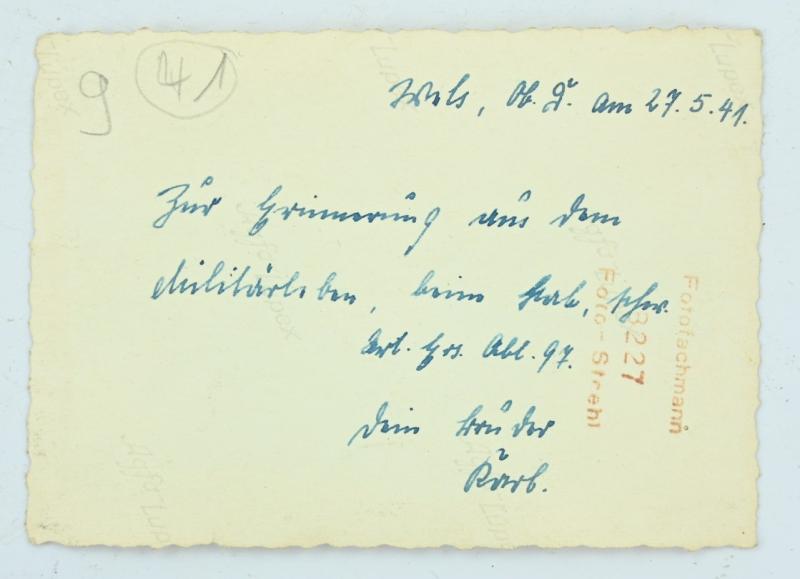 9 41
Wels, Ob. D. am 27.5.41.
Zur Erinnerung aus dem
Militärleben, beim Stab, schw.
Art. Ers. Abt. 97.
Dein Bruder
Karl.
Fotofachmann
3227
Foto-Strehl
Agfa Lupex
Agfa Lupex
Agfa Lupex